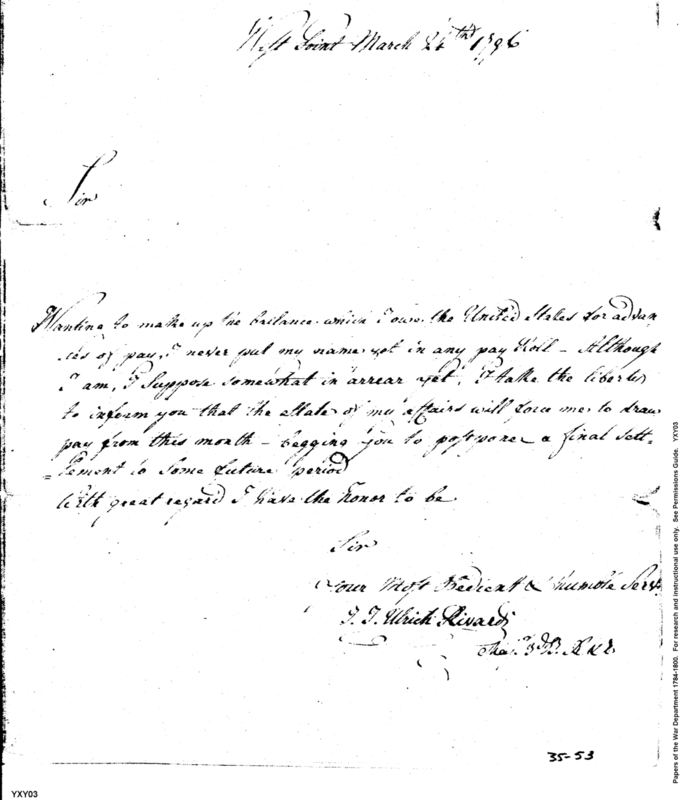 West Point March 1796
Sir
Wanting to make up the ballance which I owe the United States for advan
ces of pay, I never put my name yet in any pay Roll - Although
I am, I Suppose somewhat in arrear yet, I take the liberty
to inform you that the state of my affairs will force me to draw
pay from this month - begging you to postpone a final sett-
=lement to some future period
With great regard I have the honor to be
Sir
your Most Obedient & humble Servt
J. J. Ulrich Rivardi
35-53
YXY03
Papers of the War Department 1784-1800. For research and instructional use only. See Permissions Guide. YXY03